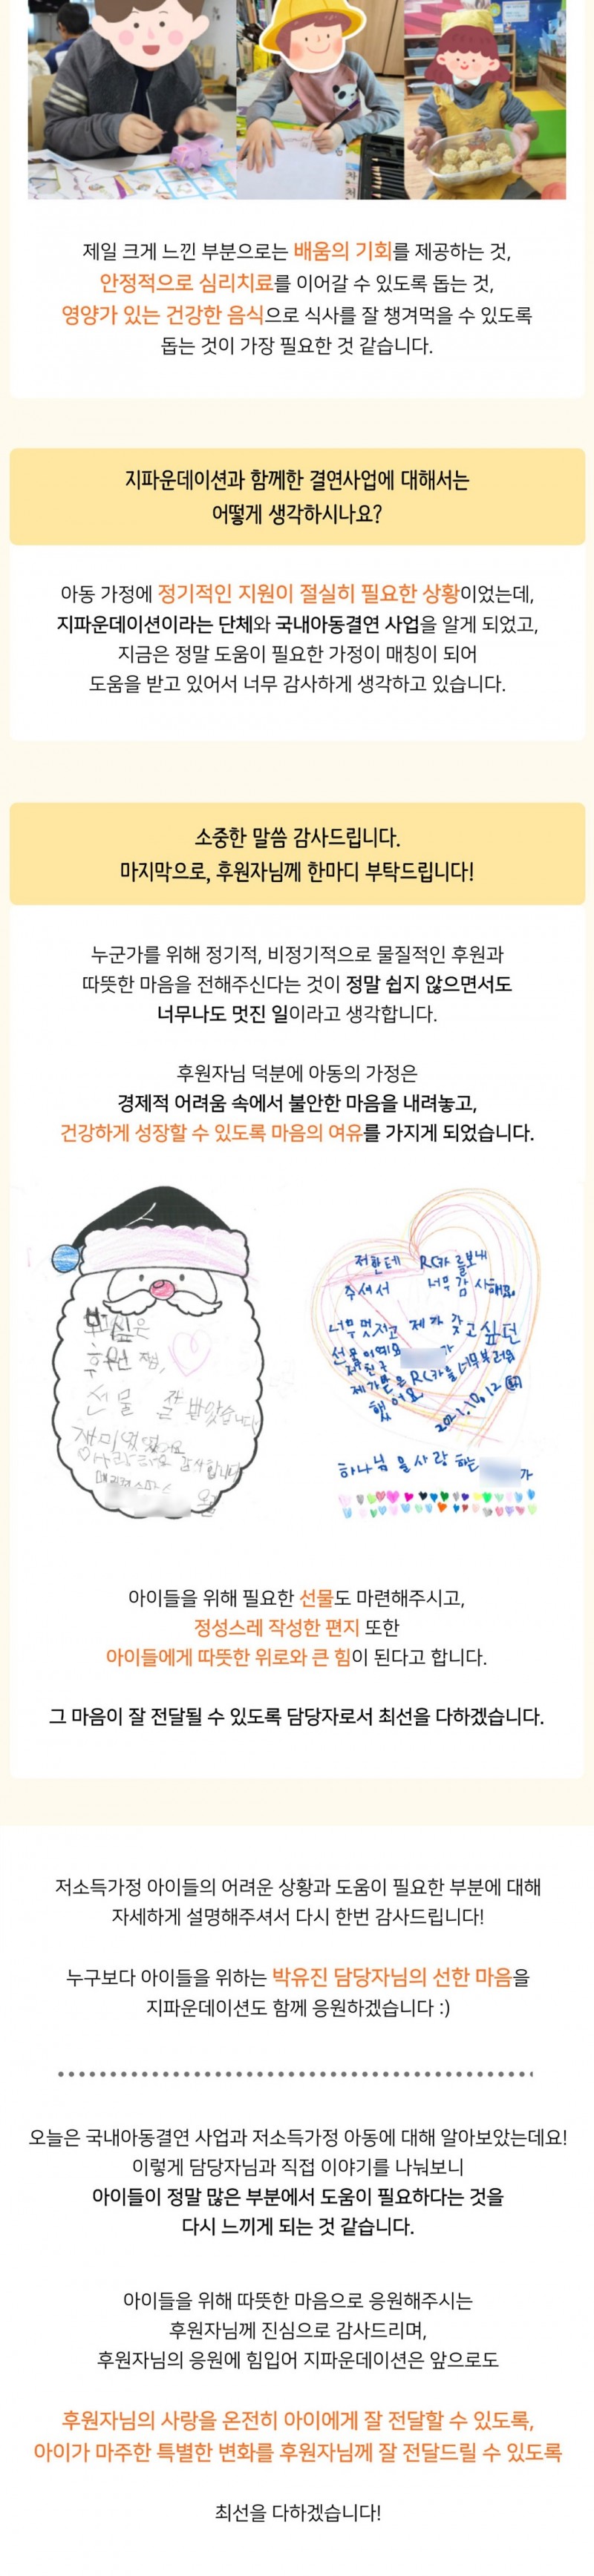 제일 크게 느낀 부분으로는 배움의 기회를 제공하는 것,
안정적으로 심리치료를 이어갈 수 있도록 돕는 것,
영양가 있는 건강한 음식으로 식사를 잘 챙겨먹을 수 있도록
돕는 것이 가장 필요한 것 같습니다.
지파운데이션과 함께한 결연사업에 대해서는
어떻게 생각하시나요?
아동 가정에 정기적인 지원이 절실히 필요한 상황이었는데,
지파운데이션이라는 단체와 국내아동결연 사업을 알게 되었고,
지금은 정말 도움이 필요한 가정이 매칭이 되어
도움을 받고 있어서 너무 감사하게 생각하고 있습니다.
소중한 말씀 감사드립니다.
마지막으로, 후원자님께 한마디 부탁드립니다!
누군가를 위해 정기적, 비정기적으로 물질적인 후원과
따뜻한 마음을 전해주신다는 것이 정말 쉽지 않으면서도
너무나도 멋진 일이라고 생각합니다.
후원자님 덕분에 아동의 가정은
경제적 어려움 속에서 불안한 마음을 내려놓고,
건강하게 성장할 수 있도록 마음의 여유를 가지게 되었습니다.
보고싶은
후원자님,
선물 잘 받았습니다
재미있었어요
사랑해요 감사합니다
메리크리스마스
저한테 RC카를 보내
주셔서 너무 감사해요
너무 멋지고 제가 갖고 싶던
선물이에요
제 친구 가
제가 받은 RC카를 너무 부러워
했어요
2021.10.12
하나님을 사랑하는 가
아이들을 위해 필요한 선물도 마련해주시고,
정성스레 작성한 편지 또한
아이들에게 따뜻한 위로와 큰 힘이 된다고 합니다.
그 마음이 잘 전달될 수 있도록 담당자로서 최선을 다하겠습니다.
저소득가정 아이들의 어려운 상황과 도움이 필요한 부분에 대해
자세하게 설명해주셔서 다시 한번 감사드립니다!
누구보다 아이들을 위하는 박유진 담당자님의 선한 마음을
지파운데이션도 함께 응원하겠습니다 :)
오늘은 국내아동결연 사업과 저소득가정 아동에 대해 알아보았는데요!
이렇게 담당자님과 직접 이야기를 나눠보니
아이들이 정말 많은 부분에서 도움이 필요하다는 것을
다시 느끼게 되는 것 같습니다.
아이들을 위해 따뜻한 마음으로 응원해주시는
후원자님께 진심으로 감사드리며,
후원자님의 응원에 힘입어 지파운데이션은 앞으로도
후원자님의 사랑을 온전히 아이에게 잘 전달할 수 있도록,
아이가 마주한 특별한 변화를 후원자님께 잘 전달드릴 수 있도록
최선을 다하겠습니다!